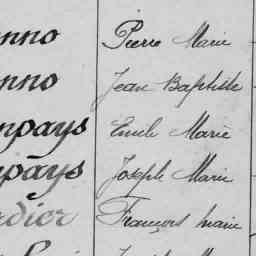 nno Pierre Marie
nno Jean Baptiste
npays Emile Marie
npays Joseph Marie
dier François Marie